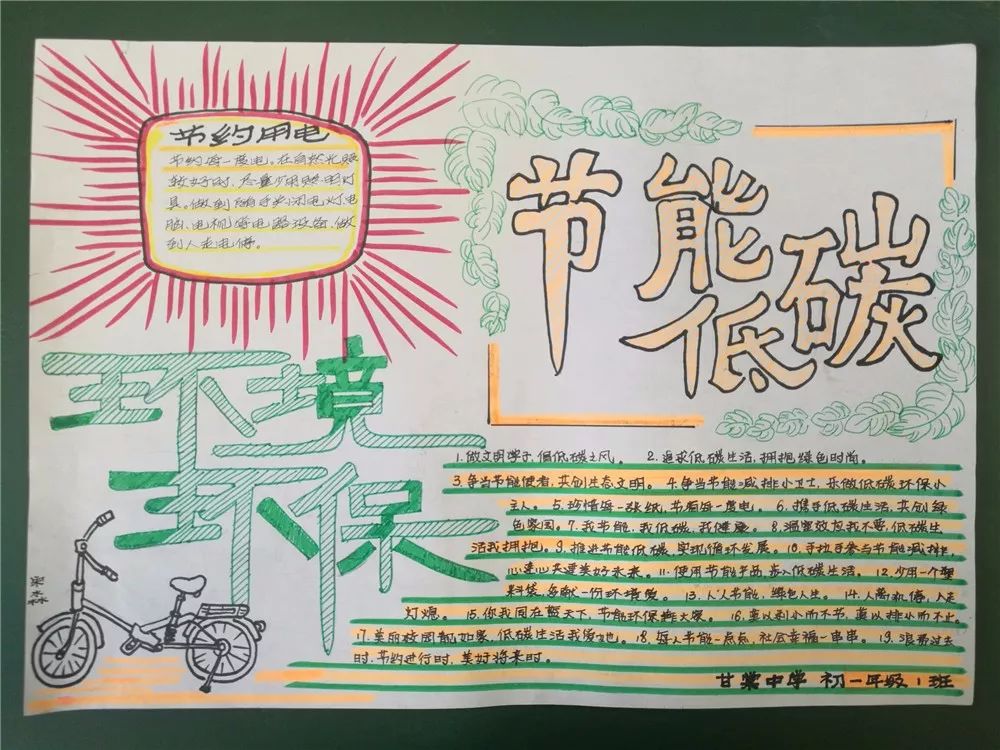 节约用电
节约每一度电。在自然光照
较好时,尽量少用照明灯
具。做到随手关闭电灯、电
脑、电机等电器设备,做
到人走电停。
节能
低碳
环境
环保
1.做文明学子,倡低碳之风。 2.追求低碳生活,拥抱绿色时尚。
3.争当节能使者,共创生态文明。4.争当节能减排小卫士,乐做低碳环保小
主人。5.珍惜每一张纸,节省每一度电。6.携手低碳生活,共创绿
色家园。7.我节能,我低碳,我健康。8.温室效应我不要,低碳生
活我拥抱。9.推进节能低碳,实现循环发展。10.手拉手参与节能减排,
心连心共建美好未来。11.使用节能产品,步入低碳生活。12.少用一个塑
料袋,多献一份环境爱。13.人人节能,绿色人生。14.人离机停,人走
灯熄。 15.你我同在蓝天下,节能环保连大家。16.莫以利小而不节,莫以排小而不止。
17.美丽校园靓如家,低碳生活我爱她。18.每人节能一点点,社会幸福一串串。19.浪费过去
时,节约进行时,美好将来时。
甘棠中学 初一年级1班